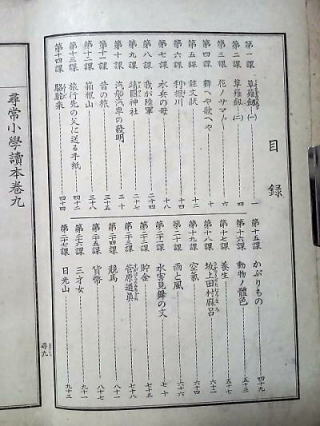 目録
第一課 草薙劒(一) 一
第二課 草薙劒(二) 四
第三課 花ノサマ〴〵 六
第四課
第五課 註文狀 十二
第六課 利根川 十四
第七課 水兵の母 十八
第八課 我が陸軍
第九課 靖國神社
第十課 汽船汽車の發明
第十一課 昔の旅
第十二課 箱根山 三十八
第十三課 旅行先の父に送る手紙 四十二
第十四課 駱駝乘 四十四
第十五課 かぶりもの 四十九
第十六課 動物ノ體色 五十三
第十七課 養生 五十七
第十八課 坂上田村麻呂
第十九課 空氣 六十四
第二十課 雨と風 六十六
第二十一課 水害見舞の文
第二十二課 貯金 七十五
第二十三課 菅原道眞
第二十四課 競馬 八十一
第二十五課 貨幣 八十七
第二十六課 三才女 九十一
第二十七課 日光山 九十三
尋九
尋常小學讀本卷九